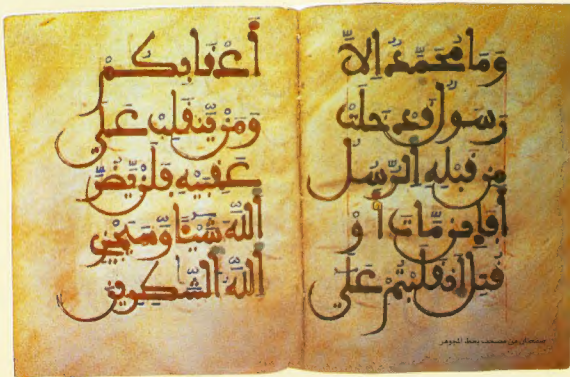 وَمَا مُحَمَّدٌ اِلاَّ
رَسُولٌ قَدْ خَلَتْ
مِن قَبْلِهِ اِ۬لرُّسُلُ
أَفَإِيْن مَّاتَ أَوْ
قُتِلَ اَ۪نقَلَبْتُمْ عَلَىٰ
أَعْقَٰبِكُمْ
وَمَنْ يَّنقَلِبْ عَلَىٰ
عَقِبَيْهِ فَلَنْ يَّضُرَّ
اَ۬للَّهَ شَيْـٔاً وَسَيَجْزِے
اِ۬للَّهُ اُ۬لشَّٰكِرِينَ
صفحتان من مصحف بخط المجوهر